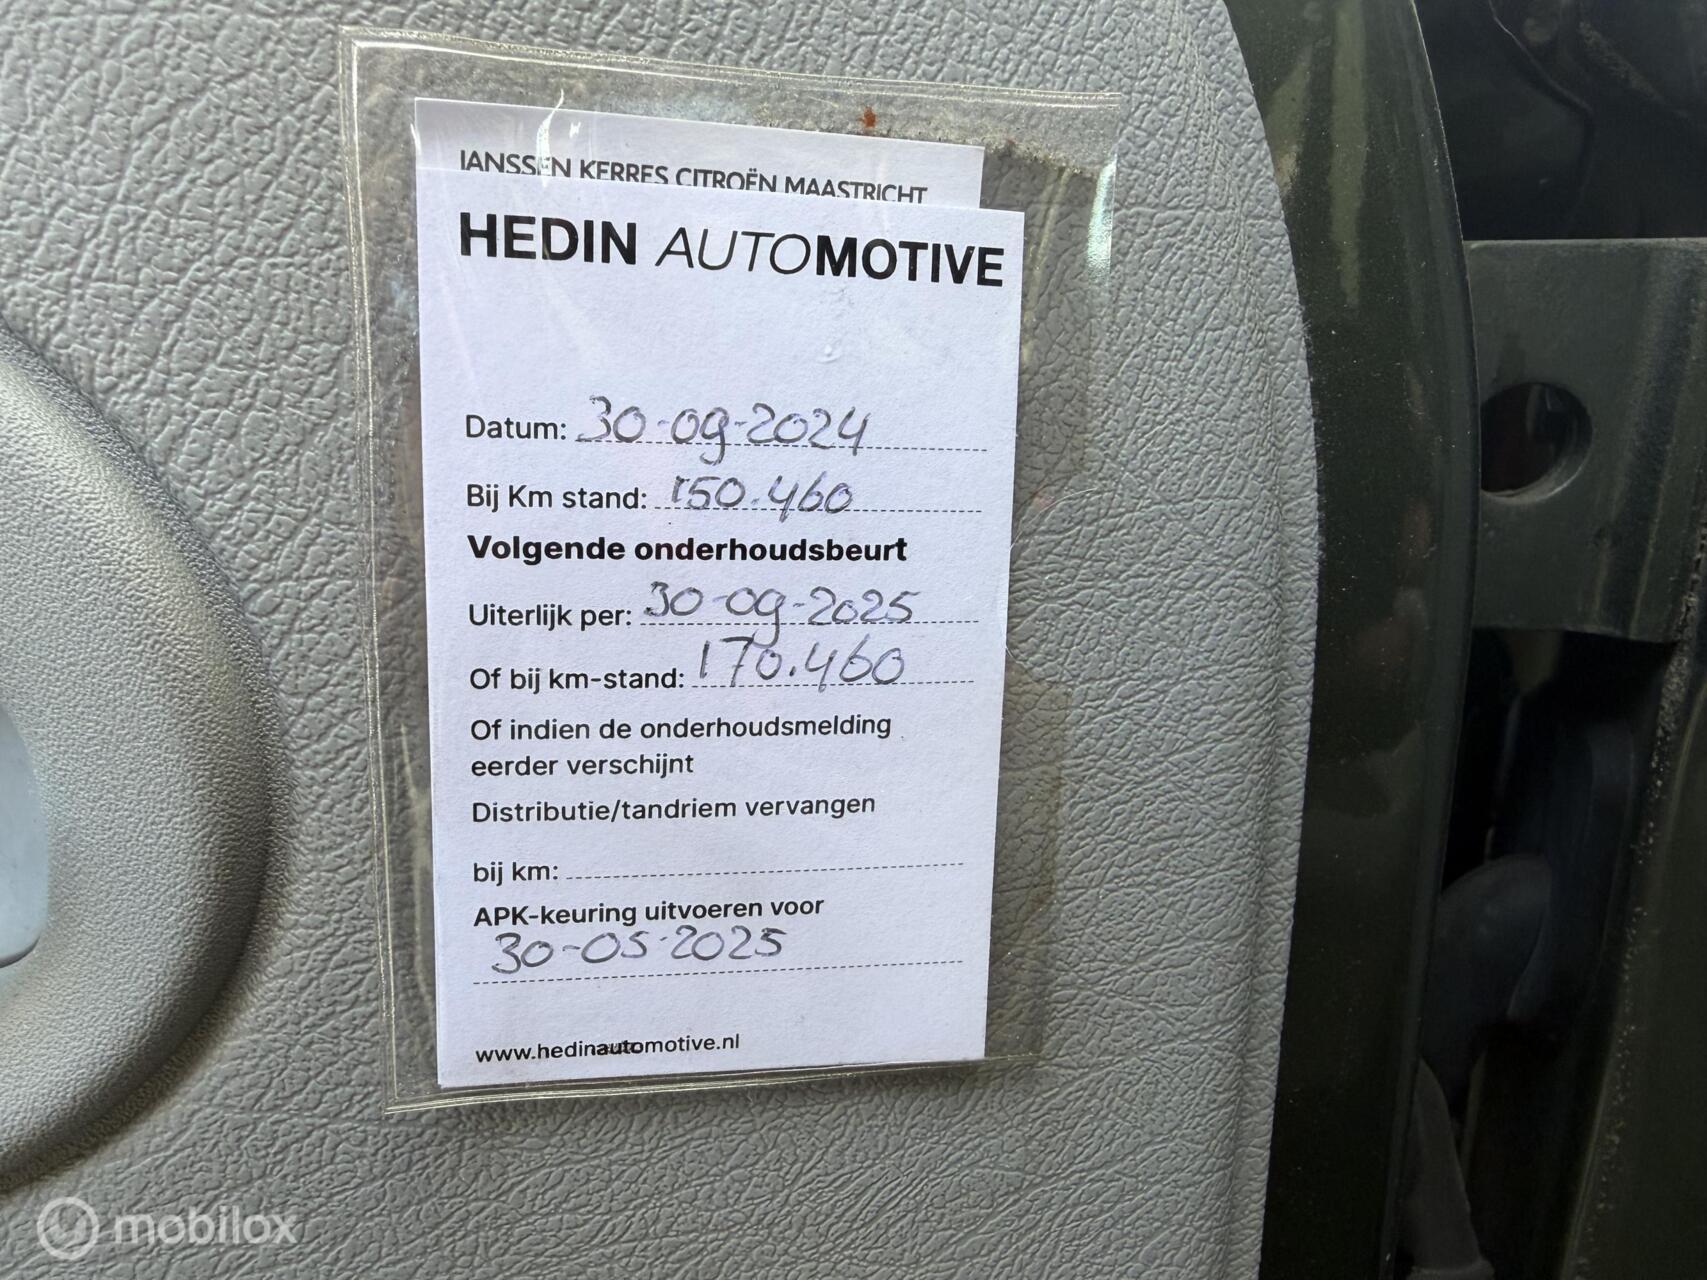 JANSSEN KERRES CITROËN MAASTRICHT
HEDIN AUTOMOTIVE
Datum: 30-09-2024
Bij Km stand: 150.460
Volgende onderhoudsbeurt
Uiterlijk per: 30-09-2025
Of bij km-stand: 170.460
Of indien de onderhoudsmelding
eerder verschijnt
Distributie/tandriem vervangen
bij km:
APK-keuring uitvoeren voor
30-05-2025
www.hedinautomotive.nl
mobilox